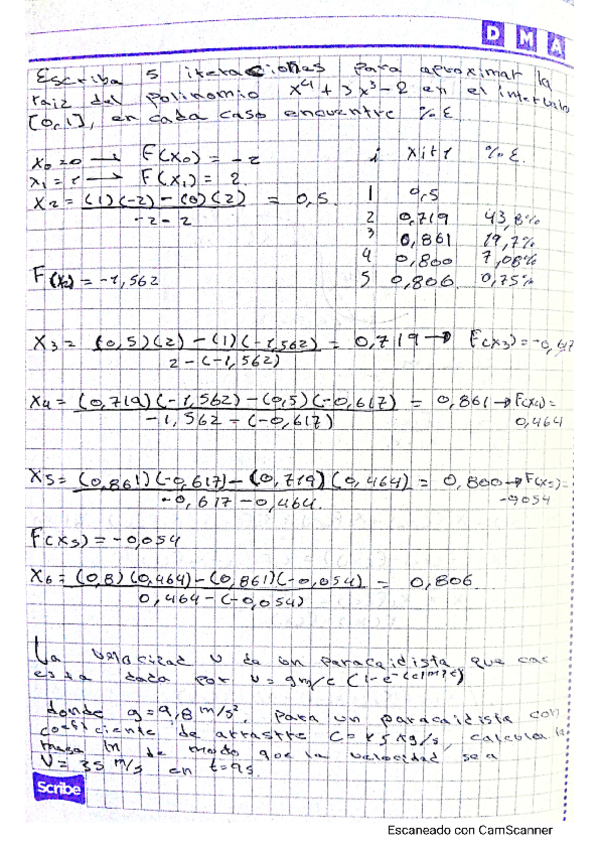 D M A
Escriba 5 iteraciones para aproximar la
raiz del polinomio x⁴ + 3x³ - 2 en el intervalo
[0,1], en cada caso encuentre % E.
x₀ = 0 → F(x₀) = -2 i xi+1 % E.
x₁ = 1 → F(x₁) = 2
x₂ = (1)(-2) - (0)(2) / -2 - 2 = 0,5. 1 0,5
2 0,719 43,8%
3 0,861 19,7%
4 0,800 7,08%
F(x₂) = -1,562 5 0,806 0,75%
x₃ = (0,5)(2) - (1)(-1,562) / 2 - (-1,562) = 0,719 → F(x₃) = -0,617
x₄ = (0,719)(-1,562) - (0,5)(-0,617) / -1,562 - (-0,617) = 0,861 → F(x₄) = 0,464
x₅ = (0,861)(-0,617) - (0,719)(0,464) / -0,617 - 0,464. = 0,800 → F(x₅) = -0,054
F(x₅) = -0,054
x₆ = (0,8)(0,464) - (0,861)(-0,054) / 0,464 - (-0,054) = 0,806
La velocidad v de un paracaidista que cae
esta dada por v = gm/c (1-e
donde g = 9,8 m/s², para un paracaidista con
coeficiente de arrastre kg/s, calcula la
masa m de modo que la velocidad sea
v = 35 m/s en t = 9s.
Scribe
Escaneado con CamScanner